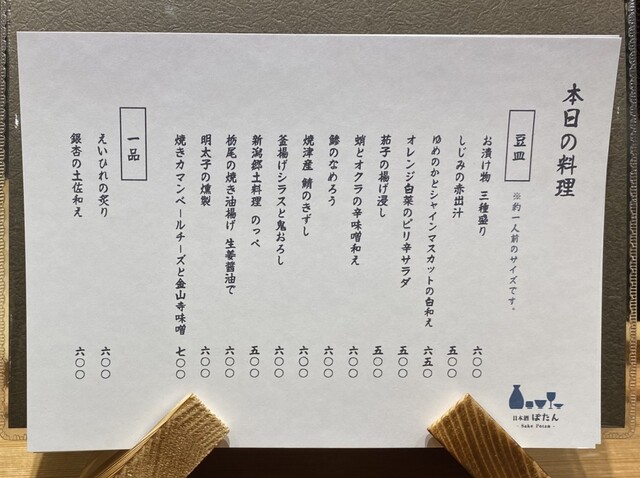 本日の料理
豆皿
※約一人前のサイズです。
お漬け物 三種盛り 六〇〇
しじみの赤出汁 五〇〇
ゆめのかとシャインマスカットの白和え 六五〇
オレンジ白菜のピリ辛サラダ 五〇〇
茄子の揚げ浸し 五〇〇
蛸とオクラの辛味噌和え 六〇〇
鯵のなめろう 六〇〇
焼津産 鯖のきずし 六〇〇
釜揚げシラスと鬼おろし 六〇〇
新潟郷土料理 のっぺ 五〇〇
栃尾の焼き油揚げ 生姜醤油で 六〇〇
明太子の燻製 六〇〇
焼きカマンベールチーズと金山寺味噌 七〇〇
一品
えいひれの炙り 六〇〇
銀杏の土佐和え 六〇〇
日本酒 ぽたん
- Sake Potan -